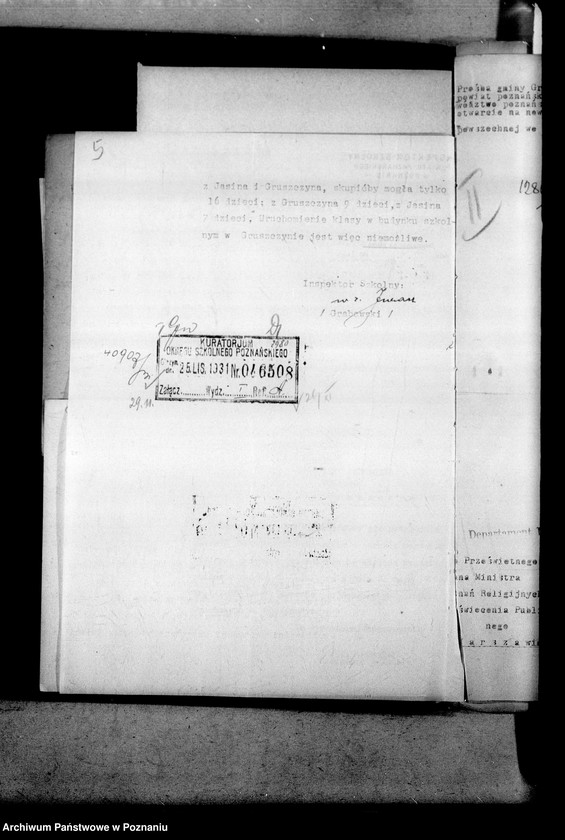 5
z Jasina i Gruszczyna, skupiłby mogła tylko
16 dzieci: z Gruszczyna 9 dzieci, z Jasina
7 dzieci. Uruchomienie klasy w budynku szkol-
nym w Gruszczynie jest więc niemożliwe.
Inspektor Szkolny:
/ Grabowski /
KURATORJUM
OKRĘGU SZKOLNEGO POZNAŃSKIEGO
25.LIS.1931 Nr. 046508
Załącz. Wydz. I Ref. A
40903/
29.11.
Prośba gminy Gr
powiat poznańsk
otwarcie na now
powszechnej we
II
128
Departament
Prześwietnego
na Ministra
nań Religijnych
świecenia Publi
nego
arszawi
Archiwum Państwowe w Poznaniu